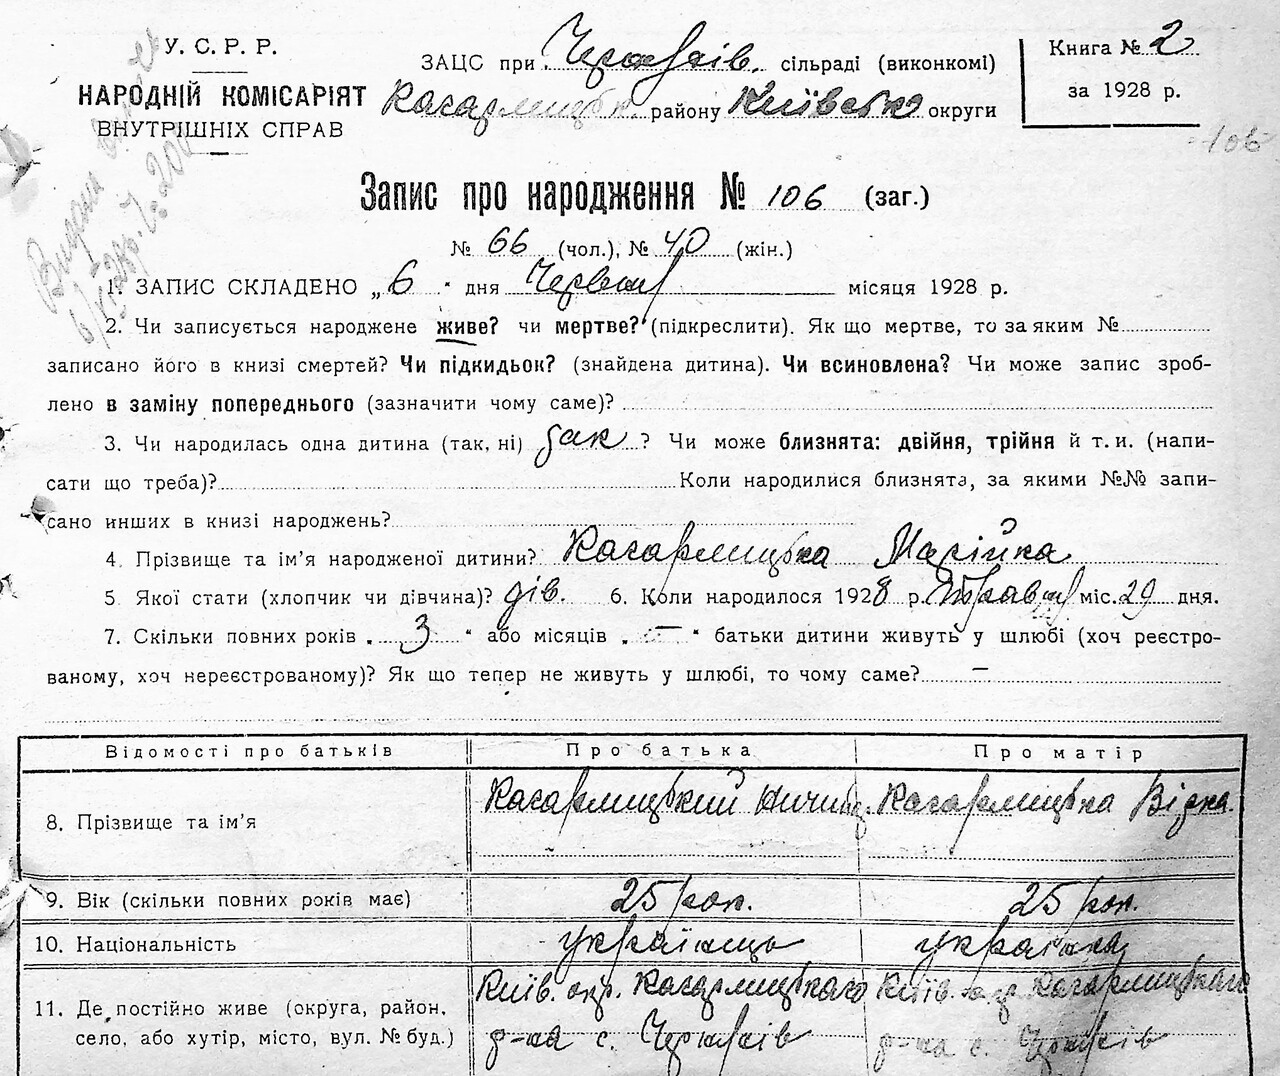 У. С. Р. Р.
НАРОДНІЙ КОМІСАРІЯТ
ВНУТРІШНІХ СПРАВ
ЗАЦС при сільраді (виконкомі)
Кагарлицьк. району Київсько округи
Книга № 2
за 1928 р.
106
Видано
Запис про народження № 106 (заг.)
№ 66 (чол.), № 40 (жін.)
1. ЗАПИС СКЛАДЕНО „ 6 " дня Червня місяця 1928 р.
2. Чи записується народжене живе? чи мертве? (підкреслити). Як що мертве, то за яким №
записано його в книзі смертей? Чи підкидьок? (знайдена дитина). Чи всиновлена? Чи може запис зроб-
лено в заміну попереднього (зазначити чому саме)?
3. Чи народилась одна дитина (так, ні) так ? Чи може близнята: двійня, трійня й т. и. (напи-
сати що треба)? Коли народилися близнята, за якими №№ запи-
сано инших в книзі народжень?
4. Прізвище та ім'я народженої дитини? Кагарлицька Марійка
5 Якої стати (хлопчик чи дівчина)? дів. 6. Коли народилося 1928 р. Травня міс. 29 дня.
7. Скільки повних років „ 3 " або місяців „ — " батьки дитини живуть у шлюбі (хоч реєстро-
ваному, хоч нереєстрованому)? Як що тепер не живуть у шлюбі, то чому саме? —
Відомості про батьків Про батька Про матір
8. Прізвище та ім'я Кагарлицький Кагарлицька Вірка
9. Вік (скільки повних років має) 25 рок. 25 рок.
10. Національність українець українка
11. Де постійно живе (округа, район, Київ. окр. Кагарлицького Київ. окр Кагарлицького
село, або хутір, місто, вул. № буд.) р-на с. р-на с.